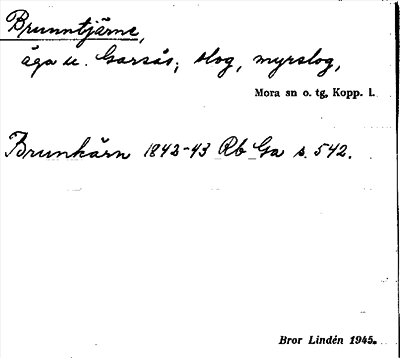 Brunntjärne,
äga u. Garsås; slog, myrslog,
Mora sn o. tg, Kopp. l.
Brunkärn 1842-43 Rb Ga s. 542.
Bror Lindén 1945.